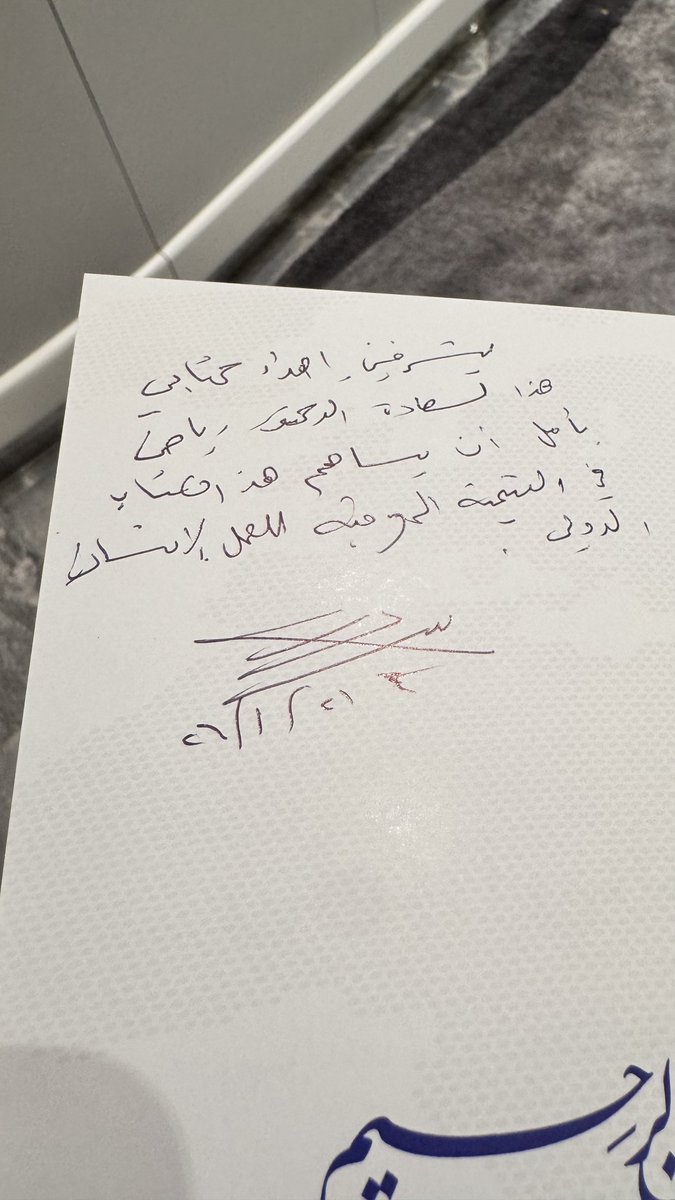 يشرفني إهداء كتابي
هذا لسعادة الدكتور رياض
بأمل أن يساهم هذا الكتاب
في التنمية المعرفية للعمل الإنساني
الدولي.
٢٦/١/٢١
الرحيم